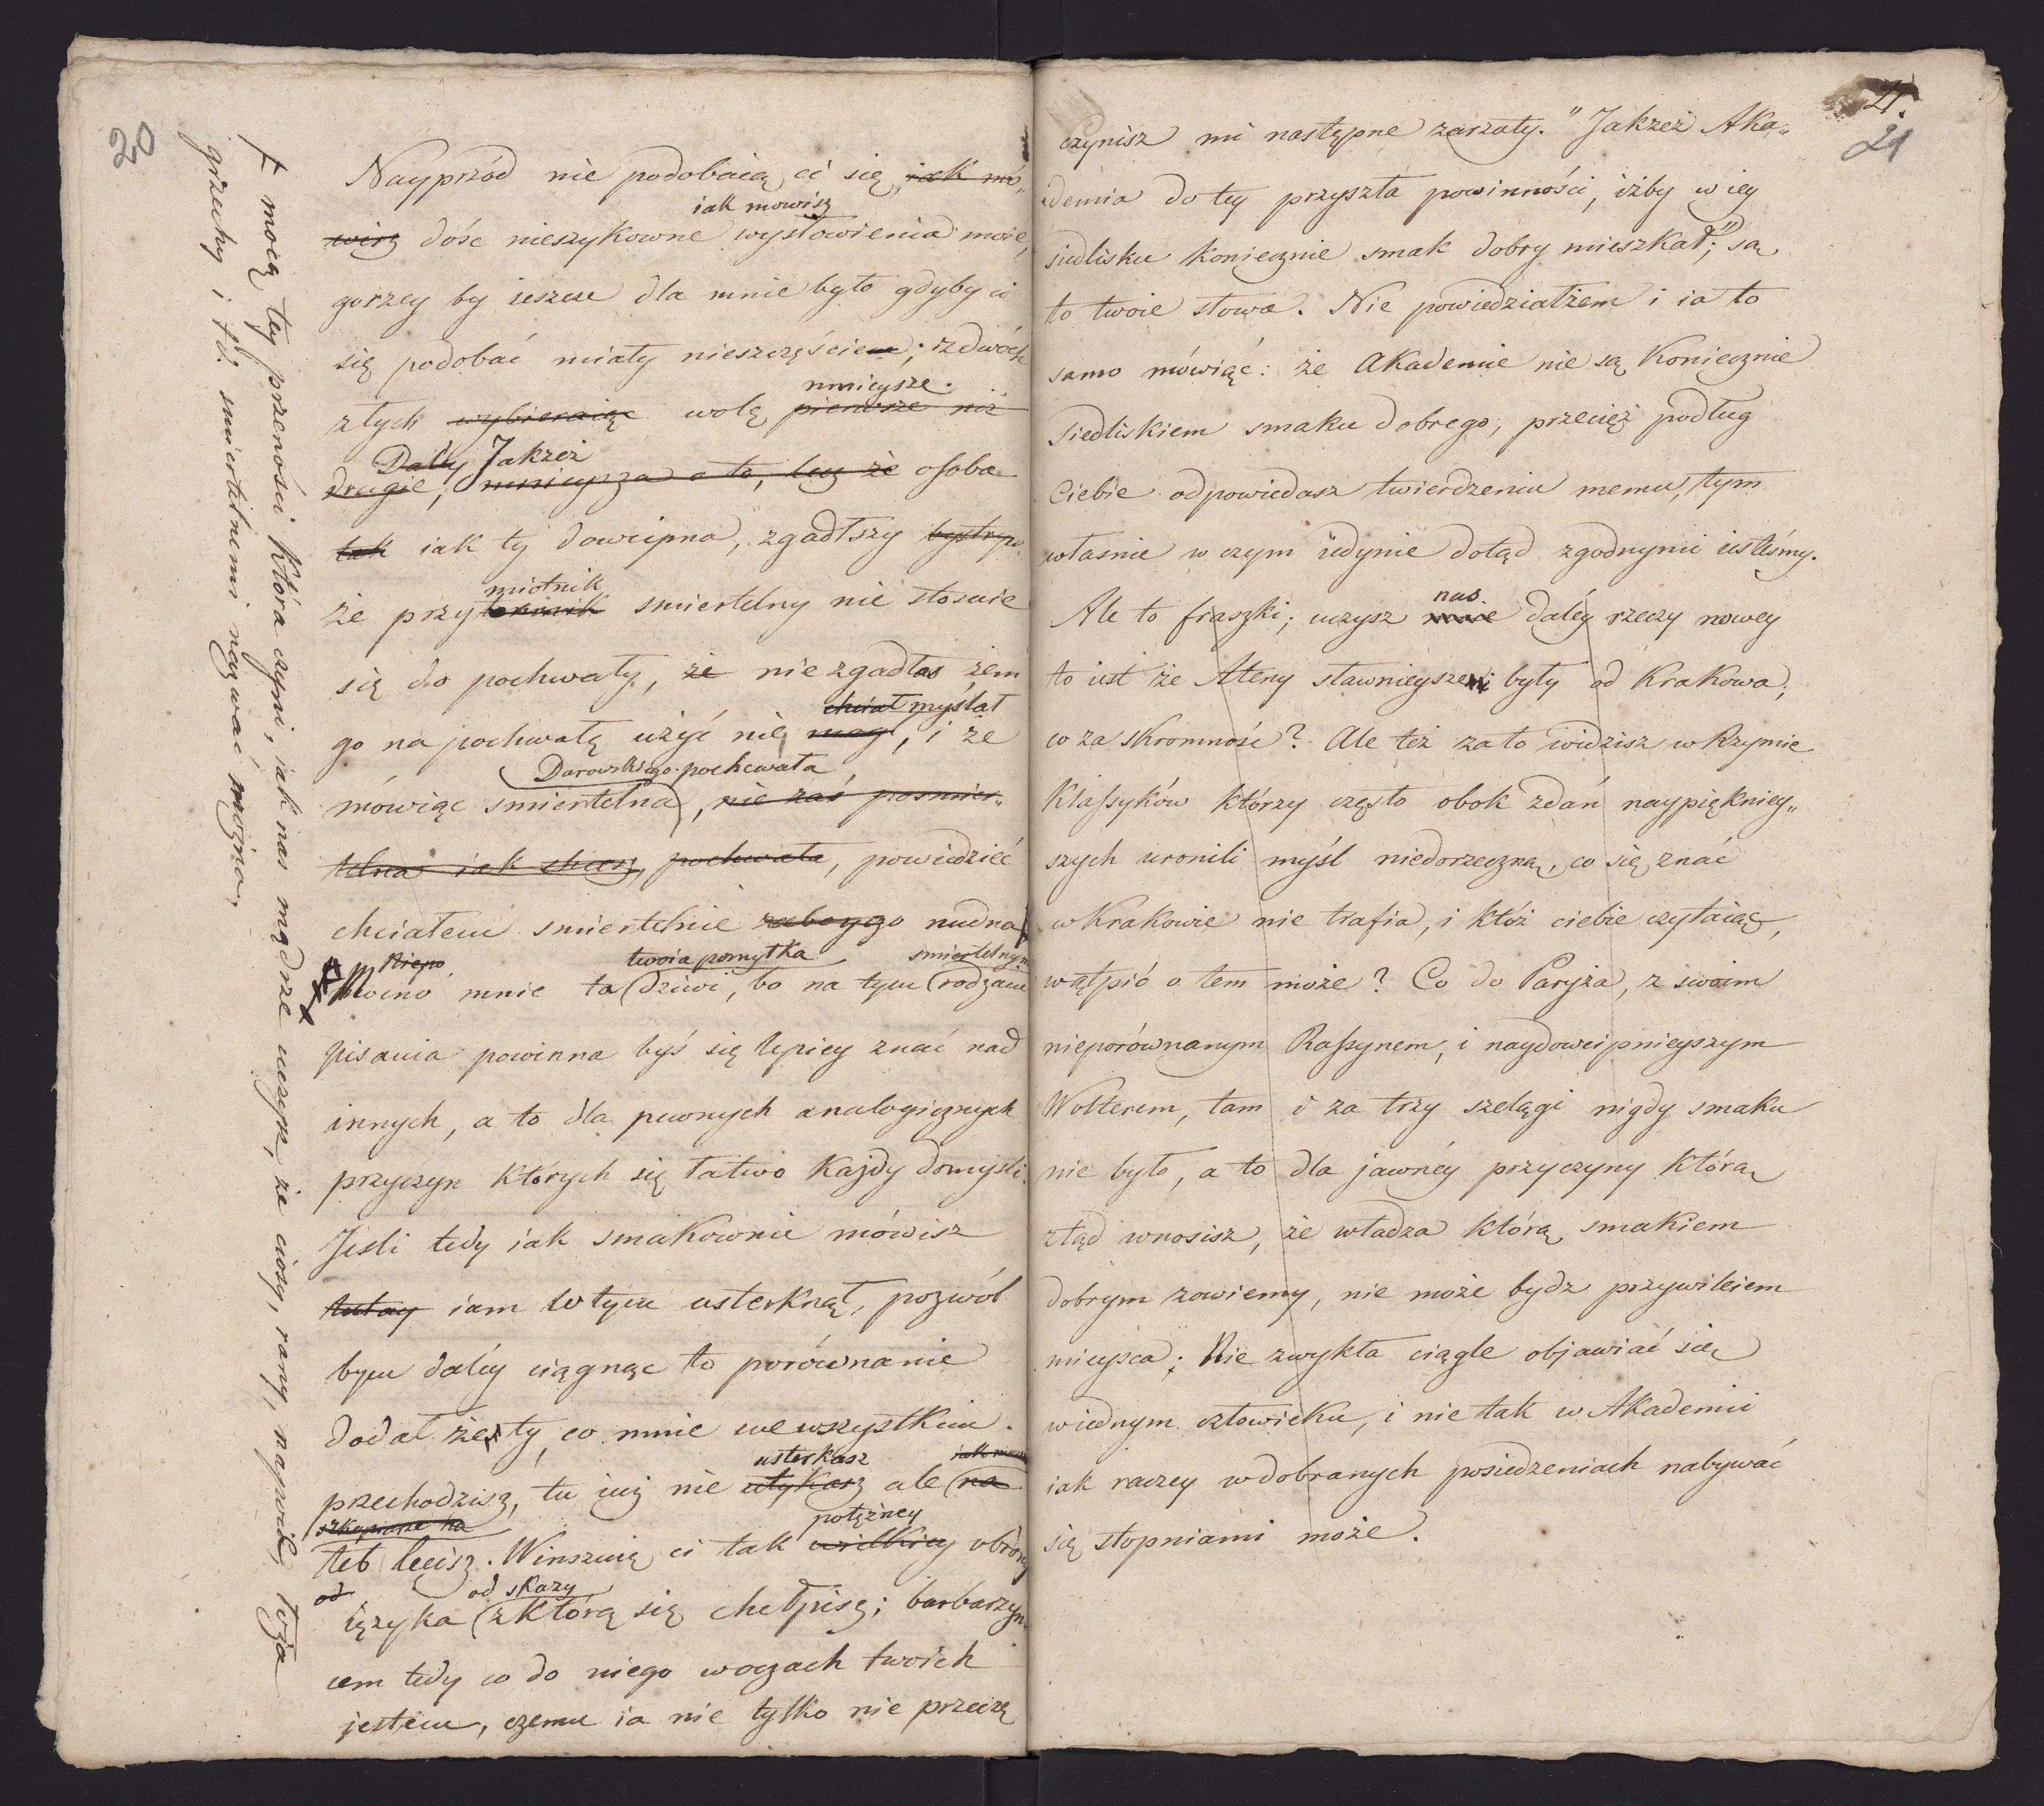 20
Nayprzód nie podobaią ci się, iak mó„
iak mowisz
wisz dość nieszykowne wysłowienia moie,
gorzey by ieszcze dla mnie było gdyby ci
się podobać miały nieszczęściem; z dwóch
mnieysze.
złych wybieraiąc wolę pierwsze niż
Daley Jakżeż
drugie; mnieysza o to, lecz że osoba
tak iak ty dowcipna, zgadłszy bystrze
miotnik
że przy smiertelny nie stosuie
się do pochwały, że nie zgadłas żem
chciał myślał
go na pochwałę użyć nie mógł, i że
Darowskiego pochwała
mówiąc smiertelna, nie zaś posmier„
telna iak chcesz, pochwała, powiedzieć
chciałem smiertelnie nudna
Niepo twoia pomyłka smiertelnym
mnie to dziwi, bo na tym rodzaiu
pisania powinna byś się lepiey znać nad
innych, a to dla pewnych analogicznych
przyczyn których się łatwo każdy domyśli.
Jesli tedy iak smakownie mówisz
tutay iam w tym usterknął, pozwól
bym daléy ciągnąc to porównanie
dodał że ty, co mnie we wszystkim
usterkasz
przechodzisz, tu iuż nie utykasz ale na
szkapiasze na potężney
łeb lecisz. Winszuię ci tak wielkiey obrony
od od skazy
ięzyka z którą się chełpisz; barbarzyń„
cem tedy co do niego w oczach twoich
jestem, czemu ia nie tylko nie przeczę
mocą tey przenośni która czyni, iak nas mądrze uczysz, że ciosy, rany, naywet łoża
grzechy i t.d. smiertelnemi nazywać można.
21.
21
czynisz mi następne zarzuty. "Jakżeż Aka„
demia do tey przyszła powinności, iżby w iey
siedlisku koniecznie smak dobry mieszkał;" są
to twoie słowa. Nie powiedziałżem i ia to
samo mówiąc: że Akademie nie są koniecznie
siedliskiem smaku dobrego, przecięż podług
Ciebie odpowiedasz twierdzeniu memu, tym
własnie w czym iedynie dotąd zgodnymi iesteśmy.
nas
Ale to fraszki; uczysz mnie daléy rzeczy nowey
to iest że Ateny sławnieysze były od Krakowa;
co za skromność? Ale też za to widzisz w Rzymie
Klassyków którzy często obok zdań naypiękniey„
szych uronili myśl niedorzeczną, co się znać
w Krakowie nie trafia, i któż ciebie czytaiąc,
wątpić o tem może? Co do Paryża, z swoim
nieporównanym Rassynem, i naydowcipnieyszym
Wolterem, tam i za trzy szelągi nigdy smaku
nie było, a to dla jawnéy przyczyny którą
ztąd wnosisz, że władza którą smakiem
dobrym zowiemy, nie może bydz przywileiem
mieysca; Nie zwykła ciągle objawiać się
w iednym człowieku, i nie tak w Akademii
iak raczey w dobranych posiedzeniach nabywać
się stopniami może.